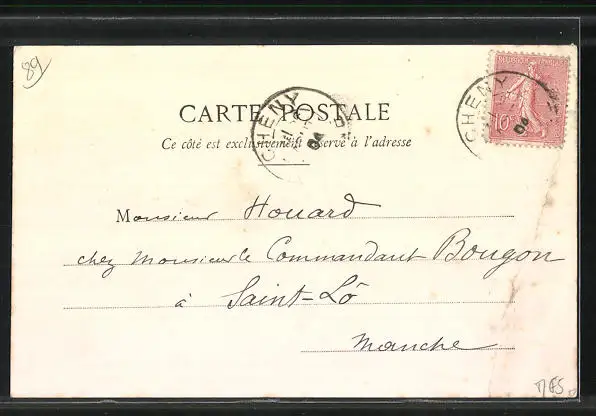 89
CARTE POSTALE
Ce côté est exclusivement réservé à l'adresse
CHENY
04
CHENY
04
REPUBLIQUE FRANÇAISE
10c
Monsieur Houard
chez Monsieur le Commandant Bougon
à Saint-Lô
Manche